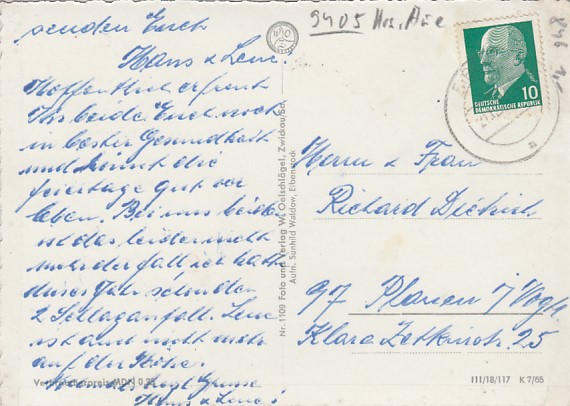 senden Euch
Hans u Lene.
Hoffentlich erfreut
Ihr beide Euch noch
in bester Gesundheit
und könnt die
feiertage gut ver
leben. Bei uns beiden
ist das leider nicht
mehr der fall ich hatte
dieses Jahr schon den
2 Schlaganfall. Lene
ist auch nicht mehr
auf der Höhe.
Grüsse
Hans u Lene.
Verbraucherpreis MDN 0,25
Nr. 1109 Foto und Verlag W. Oelschlägel, Zwickau/Sa.
Aufn. Sunhild Waldow, Eibenstock
9405 Aue
10
DEUTSCHE
DEMOKRATISCHE REPUBLIK
Herrn u Frau
Richard Dietrich
97 Plauen i/Vogtl
Klara Zetkinstr 25
III/18/117 K 7/65